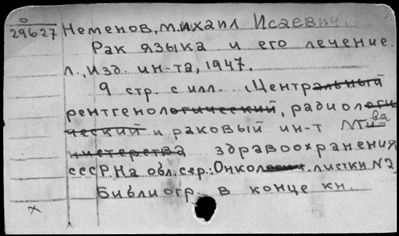 о
29627 Неменов, Михаил Исаевич.
Рак языка и его лечение.
Л., Изд. ин-та, 1947.
9 стр. с илл. (Центральный
рентгенологический, радиологи
ческий и раковый ин-т Мин-ва
нистерства здравоохранения
СССР. На обл. сер.: Онкол. листки N2)
Библиогр. в конце кн.
х